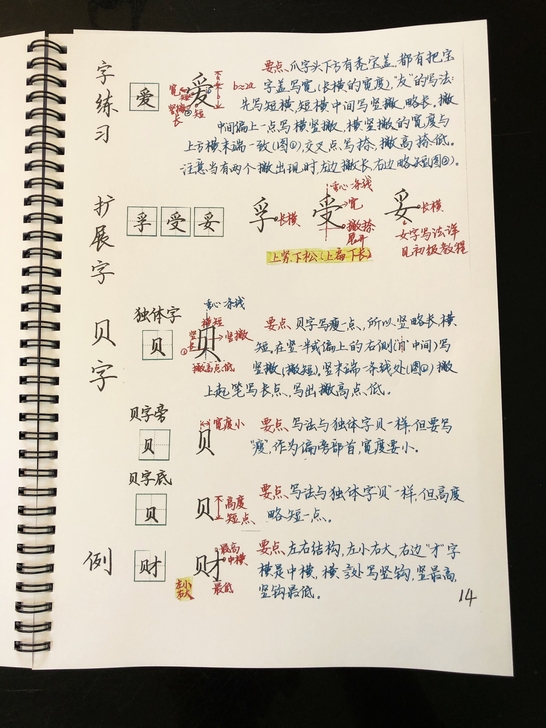 字练习
爱
宽
竖撇长
短
b≈a
要点、爪字头下方有秃宝盖,都有把宝
字盖写宽(长横的宽度),"友"的写法:
先写短横,短横中间写竖撇,略长,撇
中间偏上一点写横竖撇,横竖撇的宽度与
上方横末端一致(图①),交叉点写捺,撇高捺低。
注意当有两个撇出现时,左边撇长,右边略短(图②)。
扩展字
孚 受 妥
孚
长横
重心一条线
受
宽
撇捺展开
妥
长横
女字写法详
见初级教程
上紧下松(上扁下长)
贝字
独体字
贝
重心一条线
横短
竖长
贝
竖撇
撇高点低
要点、贝字写瘦一点,所以竖略长,横
短,在竖一半或偏上的右侧("冂"中间)写
竖撇(撇短),竖末端一条线处(图①)撇
上起笔写长点、写出撇高点低。
贝字旁
贝
贝
宽度小
要点、写法与独体字贝一样,但要写
"瘦",作为偏旁部首,宽度要小。
贝字底
贝
贝
高度短一点
要点、写法与独体字"贝"一样,但高度
略短一点。
例
财
财
最高
中横
最低
左小右大
要点、左右结构,左小右大,右边"才"字
横是中横,横 处写竖钩,竖最高,
竖钩最低。
14